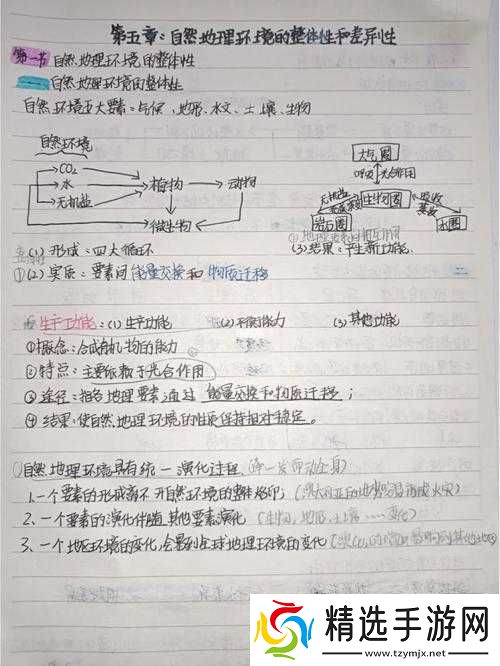 第五章：自然地理环境的整体性和差异性
第一节 自然地理环境的整体性
一 自然地理环境的整体性
自然环境五大要素：气候、地形、水文、土壤、生物
自然环境
CO₂
水
无机盐
植物
动物
微生物
大气圈
呼吸 光合作用
无机盐
生物圈
吸收
蒸腾
岩石圈
水圈
(1) 形成：四大循环
(3) 结果：产生新功能
①(2) 实质：要素间能量交换和物质迁移
生产功能：(1) 生产功能 (2) 平衡能力 (3) 其他功能
①概念：合成有机物的能力
②特点：主要依赖于光合作用
③途径：通过能量交换和物质迁移；
④结果：使自然地理环境的性质保持相对稳定。
自然地理环境具有统一演化过程（牵一发而动全身）
1、一个要素的形成离不开自然环境的整体烙印；
2、一个要素的演化伴随其他要素演化（生物、地形、土壤……变化）
3、一个地区环境的变化，会影响到全球地理环境的变化
精选手游网
www.tzymjx.net